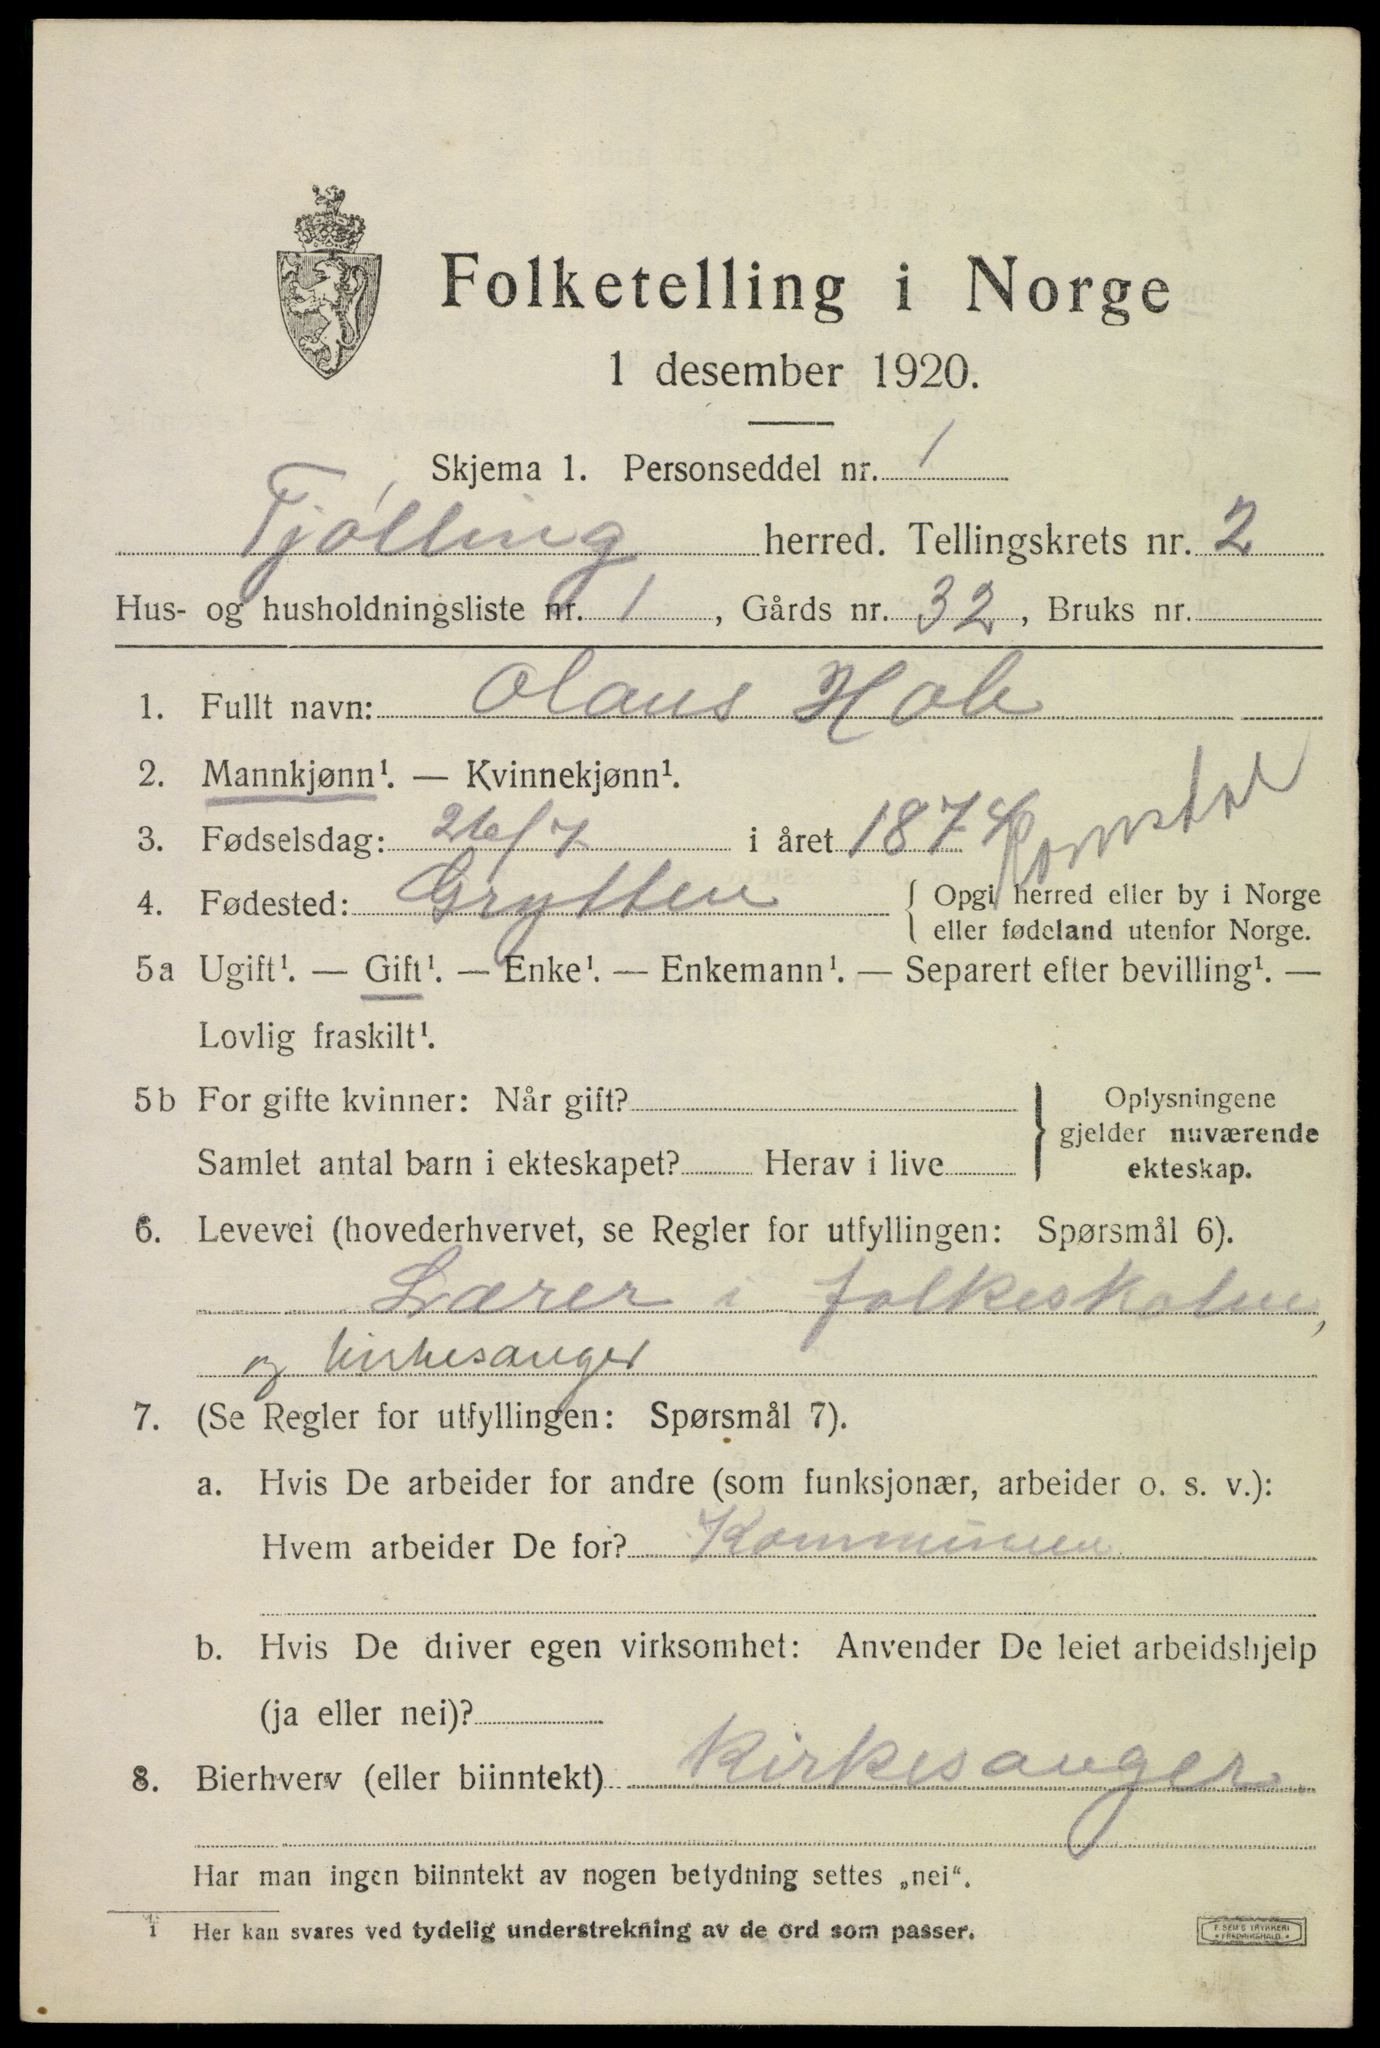 Folketelling i Norge
1 desember 1920.
Skjema 1. Personseddel nr. 1
Tjølling herred. Tellingskrets nr. 2
Hus- og husholdningsliste nr. 1, Gårds nr. 32, Bruks nr.
1. Fullt navn: Olaus Hole
2. Mannkjønn¹. — Kvinnekjønn¹.
3. Fødselsdag: 26/7 i året 1874
Romsdal
4. Fødested: Grytten { Opgi herred eller by i Norge
eller fødeland utenfor Norge.
5a Ugift¹. — Gift¹. — Enke¹. — Enkemann¹. — Separert efter bevilling¹. —
Lovlig fraskilt¹.
5b For gifte kvinner: Når gift? } Oplysningene
gjelder nuværende
Samlet antal barn i ekteskapet? Herav i live
ekteskap.
6. Levevei (hovederhvervet, se Regler for utfyllingen: Spørsmål 6).
Lærer i folkeskolen,
og kirkesanger
7. (Se Regler for utfyllingen: Spørsmål 7).
a. Hvis De arbeider for andre (som funksjonær, arbeider o. s. v.):
Hvem arbeider De for? Kommunen
b. Hvis De driver egen virksomhet: Anvender De leiet arbeidshjelp
(ja eller nei)?
8. Bierhverv (eller biinntekt) Kirkesanger.
Har man ingen biinntekt av nogen betydning settes „nei“.
1 Her kan svares ved tydelig understrekning av de ord som passer.
F. SEM'S TRYKKERI
• FREDRIKSHALD •